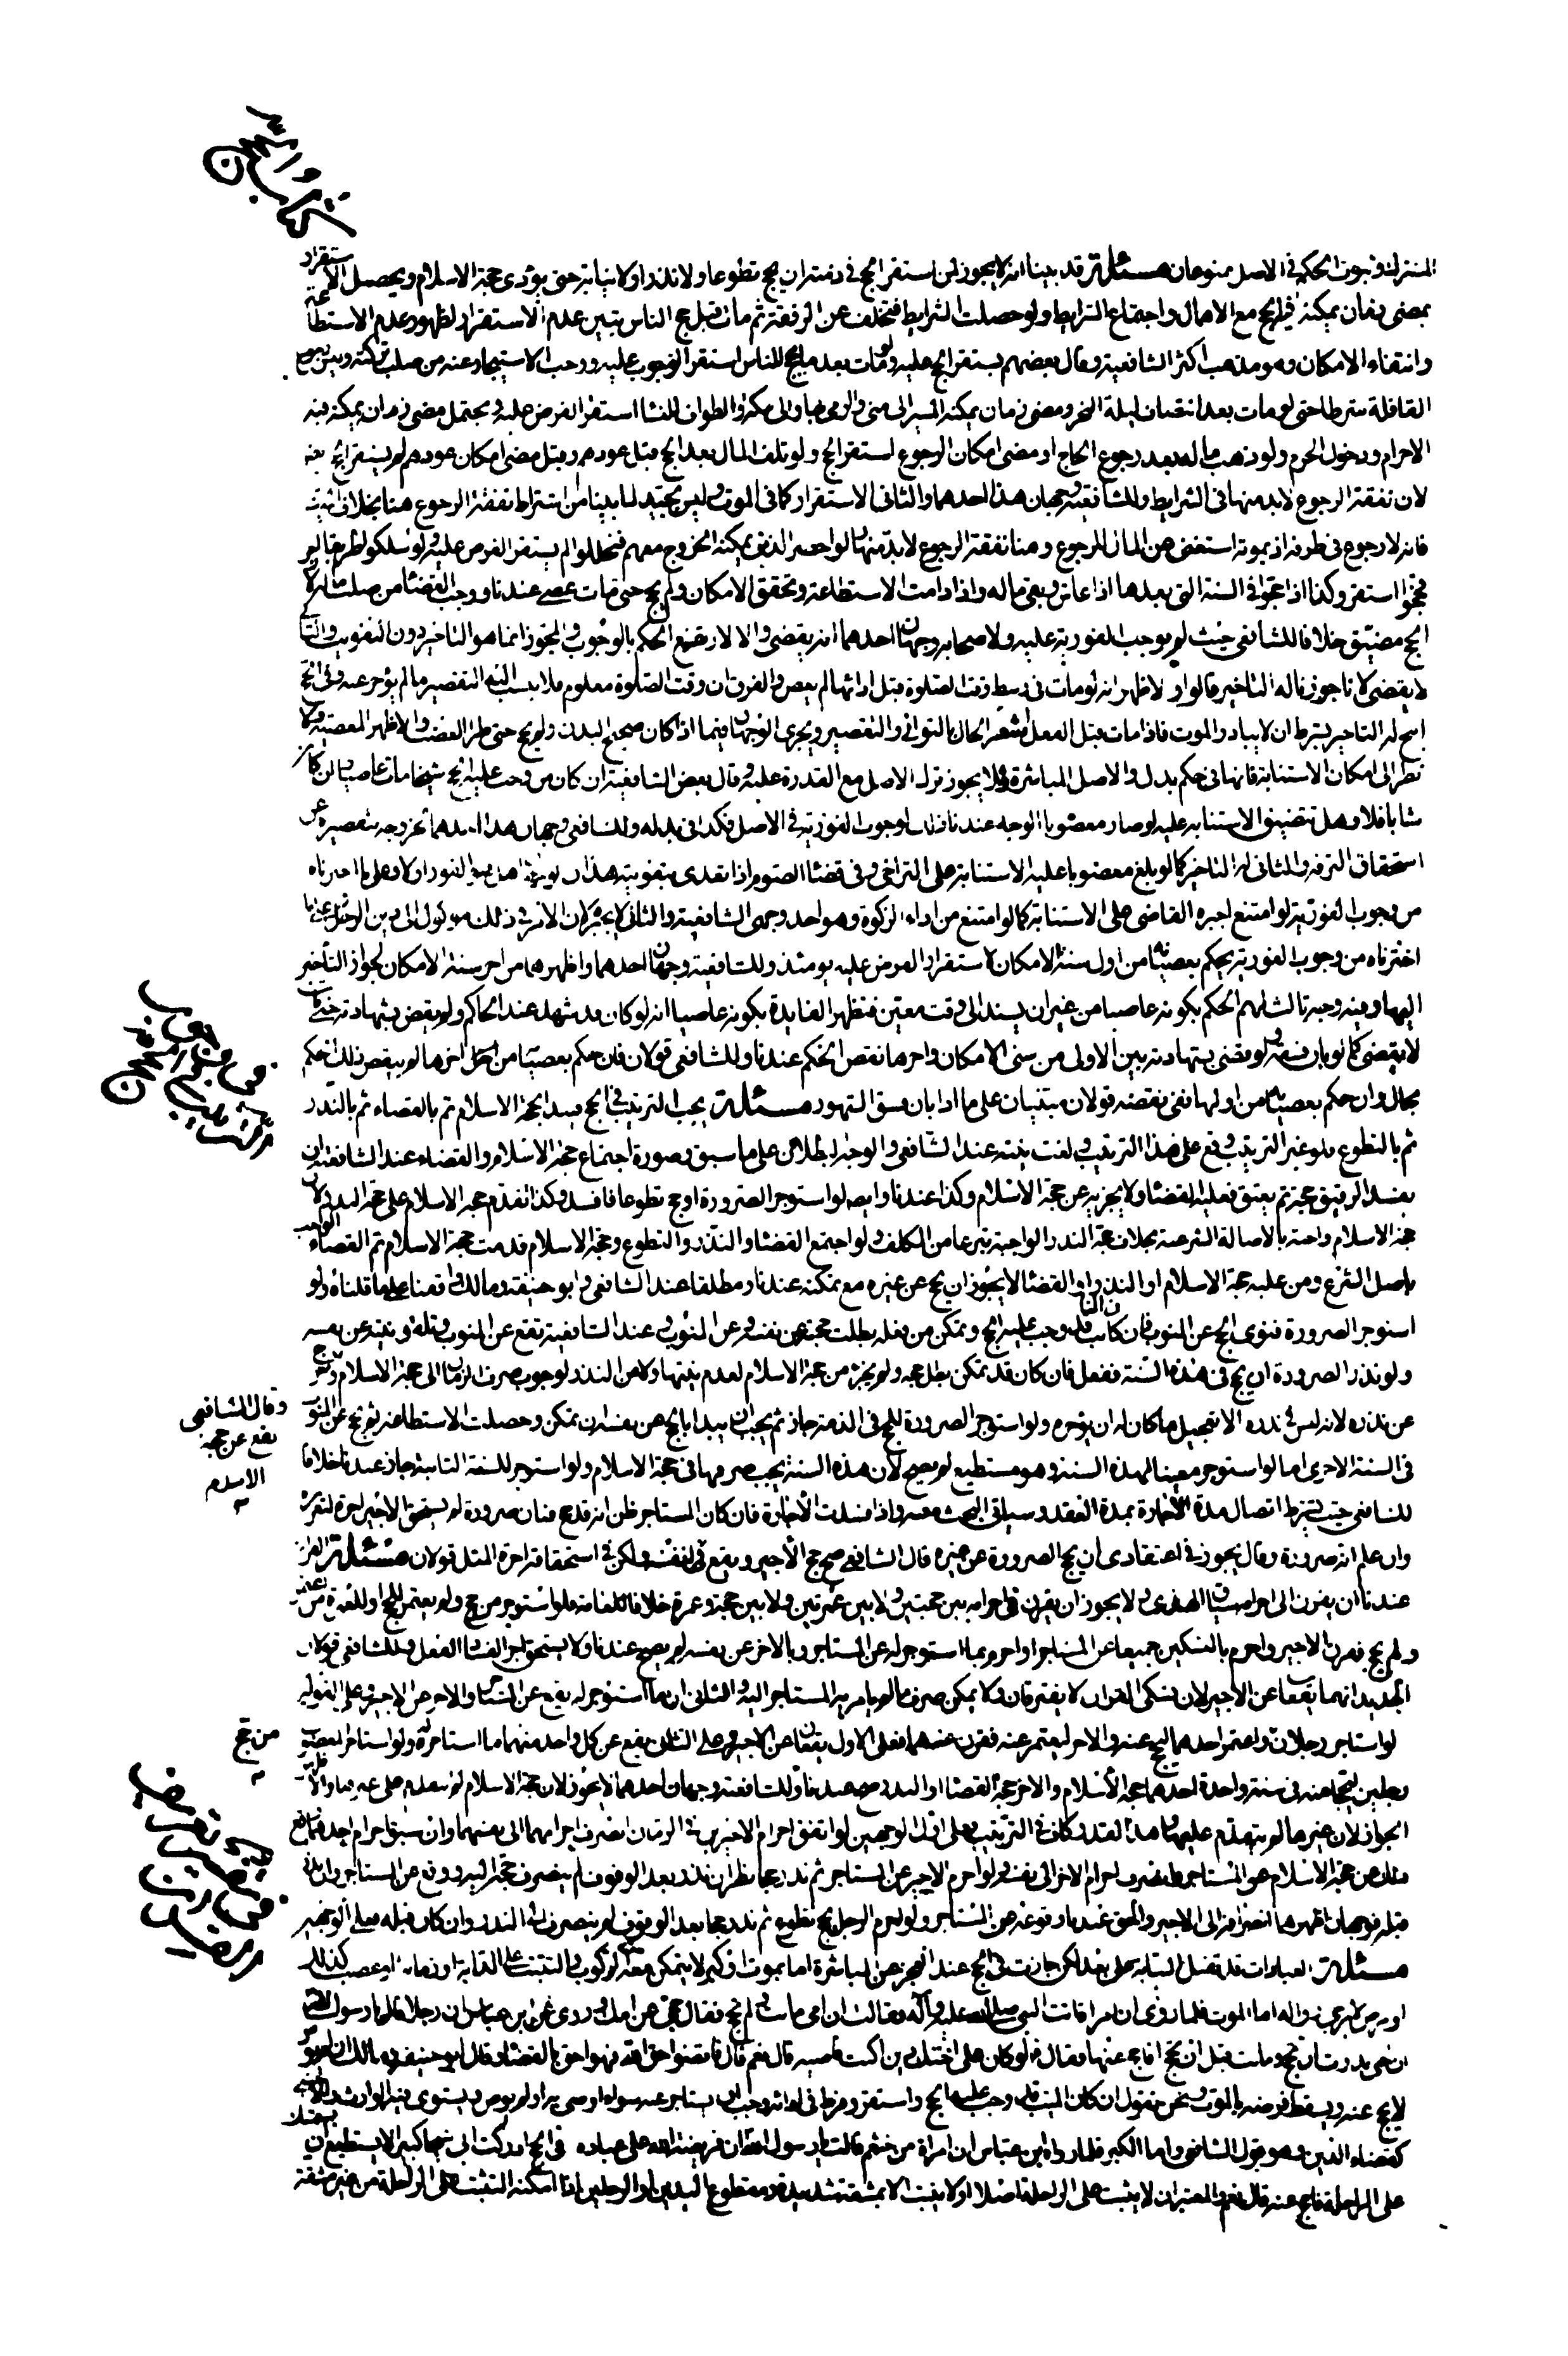 المنزل وثبوت الحكم في الاصل ممنوعان مسئلة قد بينا انه لا يجوز لمن استقر الحج في ذمته ان يحج تطوعا ولا نذرا ولا نيابة حتى يؤدى حجة الاسلام ويحصل الاستقرار
بمضى زمان يمكنه فيه الحج مع الاهمال واجتماع الشرايط ولو حصلت الشرايط فتخلف عن الرفقة ثم مات قبل حج الناس تبين عدم الاستقرار لظهور عدم الاستطاعة
وانتفاء الامكان وهو مذهب اكثر الشافعية وقال بعضهم يستقر الحج عليه ولو مات بعد ما حج الناس استقر الوجوب عليه ووجب الاستيجار عنه من صلب تركته وليس رجوع
القافلة شرطا حتى لو مات بعد انتصاف ليلة النحر ومضى زمان يمكنه المسير الى منى والرمى بها والى مكة والطواف للنسا استقر الفرض عليه ويحتمل مضى زمان يمكنه فيه
الاحرام ودخول الحرم ولو ذهب ماله بعد رجوع الحاج او مضى امكان الرجوع استقر الحج ولو تلف المال بعد الحج قبل عودهم وقبل مضى امكان عودهم لم يستقر الحج
لان نفقة الرجوع لا بد منها في الشرايط وللشافعية وجهان هذا احدهما والثانى الاستقرار كما في الموت وليس بجيد لما بينا من اشتراط نفقة الرجوع هنا بخلاف الميت
فانه لا رجوع في طرفه اذ بموته استغنى عن المال للرجوع وهنا نفقة الرجوع لا بد منها ولو احصر الذين يمكنه الخروج معهم فتحللوا لم يستقر الفرض عليه ولو سلكوا طريقا اخر
فحجوا استقر وكذا اذا حجوا في السنة التى بعدها اذا عاش وبقى ماله واذا دامت الاستطاعة وتحقق الامكان ولم يحج حتى مات عصى عندنا ووجب القضا من صلب ماله لان
الحج مضيق خلافا للشافعى حيث لم يوجب الفورية عليه ولاصحابه وجهان احدهما انه يقضى والا لارتفع الحكم بالوجوب والمجوز انما هو التاخير دون التفويت والثانى
لا يقضى لانا جوزنا له التاخير قالوا والاظهر انه لو مات في وسط وقت الصلوة قبل ادائها لم يعص والفرق ان وقت الصلوة معلوم فلا ينسب اليه التقصير ما لم يؤخر عنه وفي الحج
ابيح له التاخير بشرط ان لا يبادره الموت فاذا مات قبل الفعل اشعر الحال بالتوانى والتقصير ويجرى الوجهان فيما اذا كان صحيح البدن ولم يحج حتى طرا العضب والاظهر المعصية ولا
نظر الى امكان الاستنابة فانها في حكم بدل والاصل المباشرة فلا يجوز ترك الاصل مع القدرة عليه وقال بعض الشافعية ان كان من وجب عليه الحج شيخا مات عاصيا وان كان
شابا فلا وهل تتضيق الاستنابة عليه لو صار معضوبا الوجه عندنا ذلك لوجوب الفورية في الاصل فكذا في بدله وللشافعى وجهان هذا احدهما لخروجه بتقصيره عن
استحقاق الترفه والثانى له التاخير كما لو بلغ معضوبا عليه الاستنابة على التراخى وفي قضا الصوم اذا تعدى بتفويته هذان الوجهان هل هو على الفور ام لا وعلى ما اخترناه
من وجوب الفورية لو امتنع اجبره القاضى على الاستنابة كما لو امتنع من اداء الزكوة وهو احد وجهى الشافعية والثانى لا يجبر لان الامر في ذلك موكول الى دين الرجل وعلى ما
اخترناه من وجوب الفورية يحكم بعصيانه من اول سنة الامكان لاستقرار الفرض عليه يومئذ وللشافعية وجهان احدهما واظهرهما من اخر سنة الامكان لجواز التاخير
اليها وفيه وجه ثالث لهم الحكم بكونه عاصيا من غير ان يسند الى وقت معين فتظهر الفايدة بكونه عاصيا انه لو كان قد شهد عند الحاكم ولم يقض بشهادته حتى مات
لا يقضى كما لو بان فسقه ولو قضى بشهادته بين الاولى من سنى الامكان واخرها نقض الحكم عندنا وللشافعى قولان فان حكم بعصيانه من اخرها لم ينقض ذلك الحكم
بحال وان حكم بعصيانه من اولها ففى نقضه قولان مبنيان على ما اذا بان فسق الشهود مسئلة يجب الترتيب في الحج فيبدا بحجة الاسلام ثم بالقضاء ثم بالنذر
ثم بالتطوع فلو غير الترتيب وقع على هذا الترتيب ولغت نيته عند الشافعى والوجه البطلان على ما سبق وصورة اجتماع حجة الاسلام والقضاء عند الشافعى ان
يفسد الرقيق حجه ثم يعتق فعليه القضا ولا يجزيه عن حجة الاسلام وكذا عندنا وايضا لو استوجر الصرورة او حج تطوعا فافسده وكذا تقدم حجة الاسلام على حجة النذر لان
حجة الاسلام واجبة بالاصالة الشرعية بخلاف حجة النذر الواجبة تبرعا من المكلف ولو اجتمع القضا والنذر والتطوع وحجة الاسلام قدمت حجة الاسلام ثم القضاء الواجب
باصل الشرع ومن عليه حجة الاسلام او النذر او القضا لا يجوز ان يحج عن غيره مع تمكنه عندنا ومطلقا عند الشافعى وابو حنيفة ومالك وافقنا على ما قلناه ولو
استوجر الصرورة فنوى الحج عن المنوب فان كان النائب قد وجب عليه الحج وتمكن من فعله بطلت حجته عن نفسه وعن المنوب وعند الشافعية تقع عن المنوب وتلغو نيته عن نفسه
ولو نذر الصرورة ان يحج في هذه السنة ففعل فان كان قد تمكن بطل حجه ولم يجز من حجة الاسلام لعدم نيتها ولا من النذر لوجوب صرف الزمان الى حجة الاسلام وخرج
عن نذره لانه ليس في نذره الا تعجيل ما كان له ان يؤخره ولو استوجر الصرورة للحج في الذمة جاز ثم يجب ان يبدا بالحج عن نفسه ان تمكن وحصلت الاستطاعة ثم يحج عن المنوب
في السنة الاخرى اما لو استوجر معينا لهذه السنة وهو مستطيع لم يصح لان هذه السنة يجب صرفها في حجة الاسلام ولو استوجر للسنة الثانية جاز عندنا خلافا
للشافعى حيث يشترط اتصال مدة الاجارة بمدة العقد وسياتى البحث معه واذا فسدت الاجارة فان كان المستاجر ظن انه قد حج فبان صرورة لم يستحق الاجير اجرة لتغريره
وان علم انه صرورة وقال يجوز في اعتقادى ان يحج الصرورة عن غيره قال الشافعى صح حج الاجير ويقع عن نفسه ولكن في استحقاقه اجرة المثل قولان مسئلة القران
عندنا ان يقرن الى احرامه سياق الهدى ولا يجوز ان يقرن في احرامه بين حجتين ولا بين عمرتين ولا بين حجة وعمرة خلافا للعامة فلو استوجر من حج ولم يعتمر للحج او للعمرة من اعتمر
ولم يحج فقرن الاجير واحرم بالنسكين جميعا عن المستاجر او احرم بما استوجر له عن المستاجر وبالاخر عن نفسه لم يصح عندنا ولا يستحق اجرا لفساد الفعل وللشافعى قولان
الجديد انهما يقعان عن الاجير لان نسكى القران لا يفترقان ولا يمكن صرف ما لم يامر به المستاجر اليه والثانى ان ما استوجر له يقع عن المستاجر والاخر عن الاجير وعلى القولين
لو استاجر رجلان واعتمر احدهما ليحج عنه والاخر ليعتمر عنه فقرن عنهما فعلى الاول يقعان عن الاجير وعلى الثانى يقع عن كل واحد منهما ما استاجر له ولو استاجر المعضوب
رجلين ليحجا عنه في سنة واحدة احدهما حجة الاسلام والاخر حجة القضا او النذر صح عندنا وللشافعية وجهان احدهما لا يجوز لان حجة الاسلام لم تتقدم على غيرها والاظهر
الجواز لان غيرها لم يتقدم عليها وهذا القدر كاف في الترتيب فعلى الوجهين لو اتفق احرام الاجيرين في الزمان انصرف احرامهما الى نفسهما وان سبق احرام احدهما وقع
ذلك عن حجة الاسلام عن المستاجر وانصرف احرام الاخر الى نفسه ولو احرم الاجير عن المستاجر ثم نذر حجا نظر ان نذر بعد الوقوف لم ينصرف حجه اليه ووقع عن المستاجر وان نذر
قبله فوجهان اظهرهما انصرافه الى الاجير والحق عندنا وقوعه عن المستاجر ولو احرم الرجل بحج تطوع ثم نذر حجا بعد الوقوف لم ينصرف الى النذر وان كان قبله فعلى الوجهين
مسئلة العبادات قد تقبل النيابة على بعد لكن جازت في الحج عند العجز عن المباشرة اما بموت او كبر لا يتمكن معه الركوب والتثبت على الدابة او زمانة او عضب كذلك
او مرض لا يرجى زواله اما الموت فلما روى ان امراة اتت النبى صلى الله عليه وآله فقالت ان امى ماتت ولم تحج فقال حجى عن امك وروى عن ابن عباس ان رجلا قال يا رسول الله
ان اختى نذرت ان تحج وماتت قبل ان تحج افاحج عنها فقال لو كان على اختك دين اكنت قاضيه قال نعم قال فاقضوا حق الله فهو احق بالقضا وقال ابو حنيفة ومالك ان لم يوص
لا يحج عنه ويسقط فرضه بالموت ونحن نقول ان كان الميت قد وجب عليه الحج واستقر وفرط في ادائه وجب ان يستاجر عنه سواء اوصى به او لم يوص ويستوى فيه الوارث والاجنبى
كقضاء الدين وهو قول الشافعى واما الكبر فلما رواه ابن عباس ان امراة من خثعم قالت يا رسول الله ان فريضة الله على عباده في الحج ادركت ابى شيخا كبيرا لا يستطيع ان يستمسك
على الراحلة فاحج عنه قال نعم والمعتبر ان لا يثبت على الراحلة اصلا او لا يثبت الا بمشقة شديدة ومقطوع اليدين او الرجلين اذا امكنه التثبت على الراحلة من غير مشقة
وقال الشافعى
يقع عن حجة
الاسلام
من حج